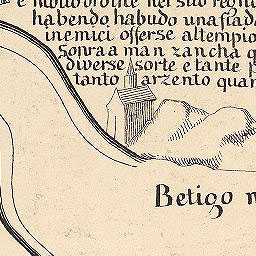 ordine nel suo
habendo habudo una fiada
inemici offerse al tempio
Sonra a man zancha q
diverse sorte e tante
tanto arzento quan
Betigo